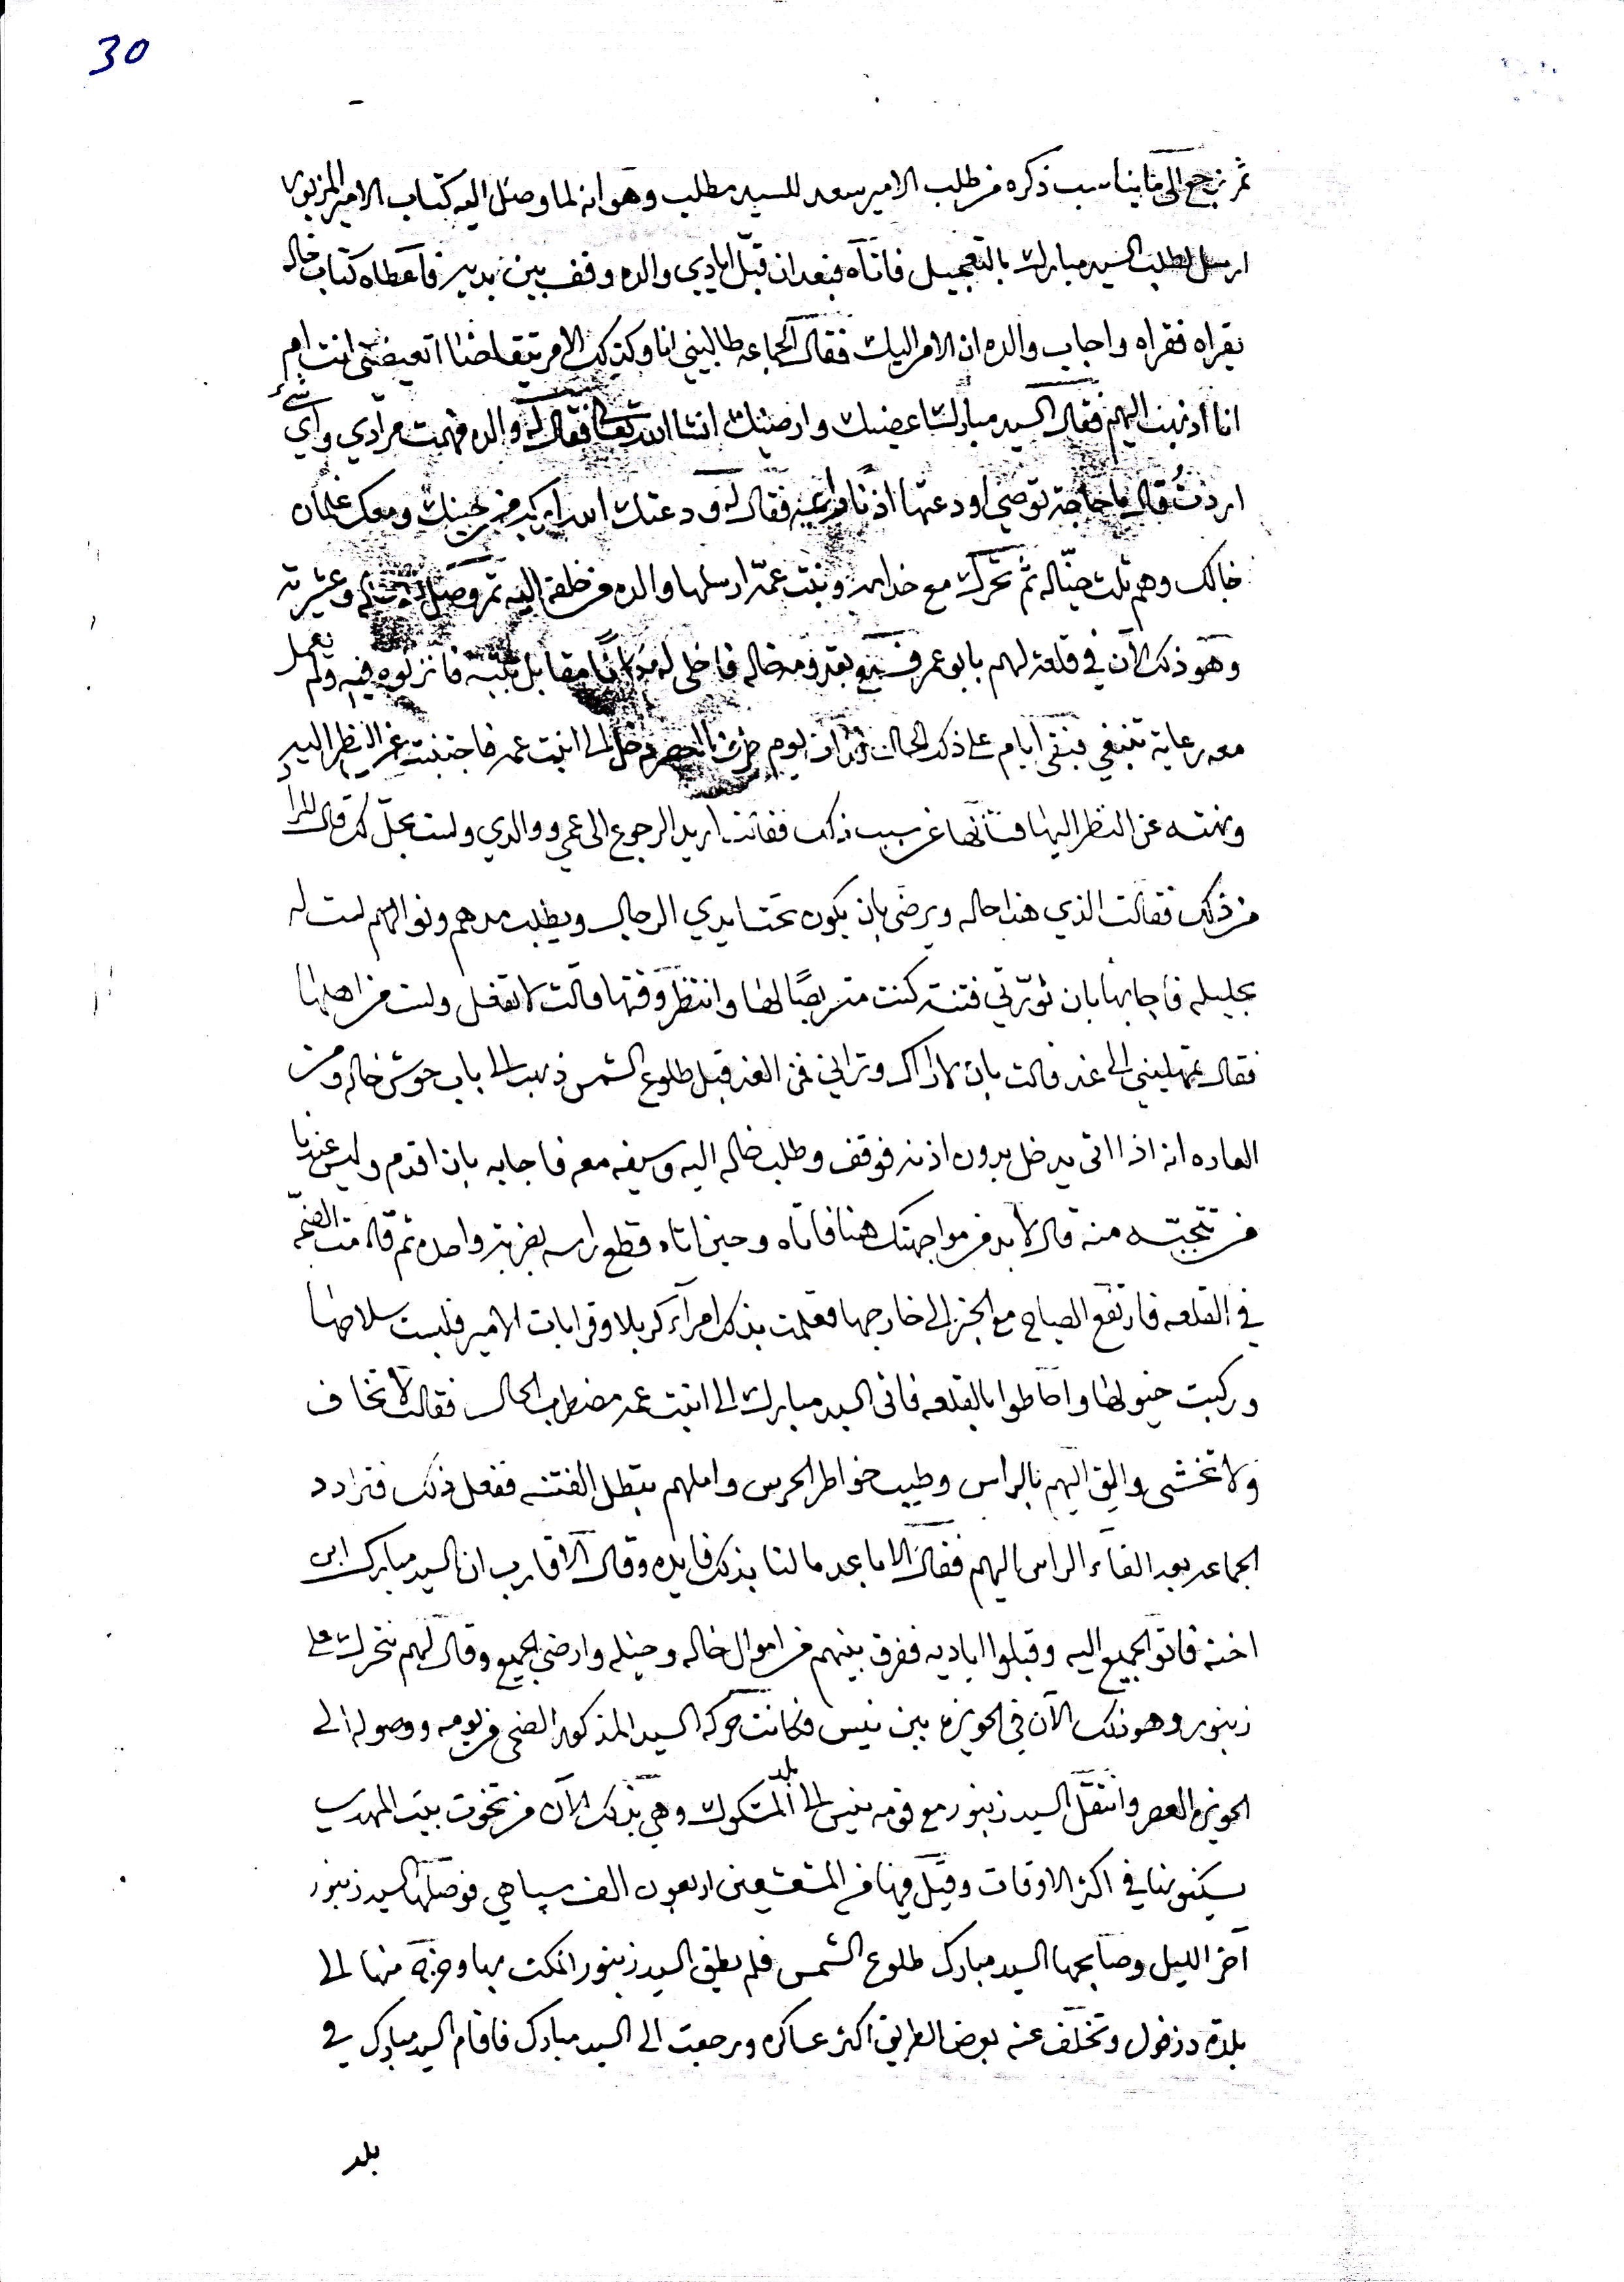 30
ثم نرجع الى ما يناسب ذكره من طلب الامير سعد للسيد مطلب وهو انه لما وصل اليه كتاب الامير المزبور
ارسل لطلب السيد مبارك بالتعجيل فاتاه فبعد ان قبّل ايادي والده وقف بين يديه فاعطاه كتاب خاله
يقراه فقراه واجاب والده ان الامر اليك فقال الجماعه طالبيني انا وكذلك الامر يتقاضانا اتعيضني انت ام
انا اذهب اليهم فقال السيد مبارك اعضيك وارضيك انشا الله تعالى فقال له والده فهمت مرادي واي شيء
اردت قال ما حاجة توصي اودعتها اذنا واعيه فقال له ودعتك الله اركب من نجيبك ومعك غلمان
خالك وهم ثلث خيّاله ثم تحرك مع خدامه وبنت عمه ارسلها والده من خلفه اليه ثم وصل وعشيرته
وهو ذلك الآن في قلعة لهم بابو عمر فسمع بقدومه خاله فاخلى له مكانًا مقابل بيته فانزلوه فيه ولم يعمل
معه رعاية تنبغي فبقى ايام على ذلك الحال يوم دخل الى ابنت عمه فاجتنبت عن النظر اليه
ونهته عن النظر اليها فسألها عن سبب ذلك فقالت اريد الرجوع الى عمي ووالدي ولست بحل لك قال لماذا
من ذلك فقالت الذي هذا حاله ويرضى بان يكون تحت ايدي الرجال ويطلب مدهم ونوالهم لست له
بحليله فاجابها بان ثورتي فتنة كنت متربصًا لها وانتظر وقتها قالت لا تفعل ولست من اهلها
فقال تمهليني الى غد قالت بان لا اراك وتراني فمن الغد قبل طلوع الشمس ذهب الى باب حوش خاله ومن
العاده انه اذا اتى يدخل بدون اذنه فوقف وطلب خاله اليه وسيفه معه فاجابه بان اقدم وليس عندنا
من تتجنبه منه قال لا بد من مواجهتك هنا فاتاه وحين اتاه قطع راسه بضربة واحده ثم قامت الضجّه
في القلعه فارتفع الصياح مع الخبر الى خارجها فعلمت بذلك امرآء كربلا وقرابات الامير فلبست سلاحها
وركبت خيولها واحاطوا بالقلعه فاتى السيد مبارك الى ابنت عمه مضطرب الحال فقالت لا تخاف
ولا تخشى والق اليهم بالراس وطيب خواطر الحرس واملهم تبطل الفتنه ففعل ذلك فترادد
الجماعه بعد القاء الراس اليهم فقال الاباعد ما لنا بذلك فايده وقال الاقارب ان السيد مبارك ابن
اخته فاتو الجميع اليه وقبلوا اياديه ففرق بينهم من اموال خاله وخيله وارضى الجميع وقال لهم نتحرك على
زنبور وهو ذلك الآن في الحويزه بين نيس فكانت حركة السيد المذكور الضحى من يومه ووصوله الى
الحويزه العصر وانتقل السيد زنبور مع قومه نيس الى بلد المشكوك وهي بذلك الآن من تخوت بيت المهدي
يسكنونها في اكثر الاوقات وقيل فيها من المشعشعين اربعون الف سپاهي فوصلها السيد زنبور
آخر الليل وصابحها السيد مبارك طلوع الشمس فلم يطق السيد زنبور المكث بها وخرج منها الى
بلدة دزفول وتخلف عنه بعض الطريق اكثر عساكره ورجعت الى السيد مبارك فاقام السيد مبارك في
بلد